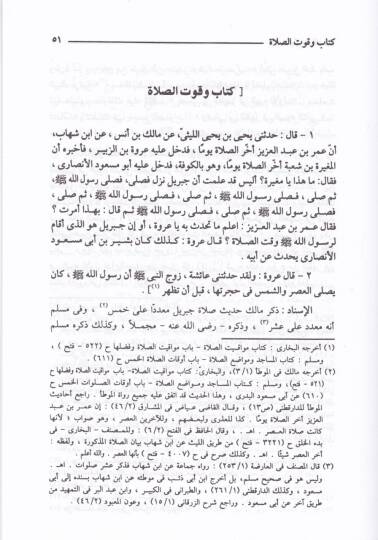 كتاب وقوت الصلاة ٥١
[ كتاب وقوت الصلاة
١ - قال : حدثنى يحيى بن يحيى الليثىّ عن مالك بن أنس ، عن ابن شهاب،
أن عمر بن عبد العزيز أخّر الصلاة يومًا، فدخل عليه عروة بن الزبير ، فأخبره أن
المغيرة بن شعبة أخّر الصلاة يومًا، وهو بالكوفة، فدخل عليه أبو مسعود الأنصارى ،
فقال: ما هذا يا مغيرة؟ أليس قد علمت أن جبريل نزل فصلى، فصلى رسول الله ﷺ،
ثم صلى ، فصلى رسول الله ﷺ ، ثم صلى ، فصلى رسول الله ﷺ ، ثم صلى ،
فصلى رسول الله ﷺ، ثم صلى ، فصلى رسول الله ﷺ ثم قال : بهذا أمرت ؟
فقال عمر بن عبد العزيز : اعلم ما تحدث به يا عروة ، أو إن جبريل هو الذى أقام
لرسول الله ﷺ وقت الصلاة ؟ قال عروة : كذلك كان بشير بن أبى مسعود
الأنصارى يحدث عن أبيه .
٢ - قال عروة : ولقد حدثتنى عائشة ، زوج النبى ﷺ أن رسول الله ﷺ، كان
يصلى العصر والشمس فى حجرتها ، قبل أن تظهر (١)] .
الإسناد : ذكر مالك حديث صلاة جبريل معددًا على خمس(٢) ، وفى مسلم
أنه معدد على عشر(٣) ، وذكره - رضى الله عنه - مجملاً ، وكذلك ذكره مسلم
(١) أخرجه البخارى : كتاب مواقيت الصلاة - باب مواقيت الصلاة وفضلها ح (٥٢٢ - فتح ) ،
ومسلم : كتاب المساجد ومواضع الصلاة - باب أوقات الصلاة الخمس ح (٦١١) .
(٢) أخرجه مالك فى الموطأ (٣/١)، والبخارىّ: كتاب مواقيت الصلاة- باب مواقيت الصلاة وفضلها ح
(٥٢١ - فتح)، ومسلم : كتاب المساجد ومواضع الصلاة - باب أوقات الصلوات الخمس ح
(٦١٠) عن أبى مسعود البدرى ، وهذا الحديث قد اتفق عليه جميع رواة الموطأ . راجع أحاديث
الموطأ للدارقطنى (ص١٣) ، وقال القاضى عياض فى المشارق (٤٦/٢) : إن عمر بن عبد
العزيز أخر الصلاة يومًا . كذا للعذرى ولبعضهم ، وللآخرين العصر ، وهو صواب ، لأنها
كانت صلاة العصر . اهـ . وقال الحافظ فى الفتح (٦/٢) : وللمصنف - البخارى - فى
بدء الخلق ح ( ٣٢٢١ - فتح ) من طريق الليث عن ابن شهاب بيان الصلاة المذكورة ، ولفظه :
أخر العصر شيئًا . اهـ . وكذلك صرح فى ح (٤٠٠٧ - فتح ) بأنها العصر . والله أعلم .
(٣) قال المصنف فى العارضة (٢٥٣/١) : رواه جماعة عن ابن شهاب فذكر عشر صلوات . اهـ .
وليس هو فى صحيح مسلم، بل أخرج ابن أبى ذئب فى موطئه عن ابن شهاب بسنده إلى أبى
مسعود ، وكذلك الدارقطنى (٢٦١/١) ، والطبرانى فى الكبير ، وابن عبد البر فى التمهيد من
أبى مسعود . وراجع شرح الزرقانى (١٥/١) ، وعون المعبود (٤٦/٢) .